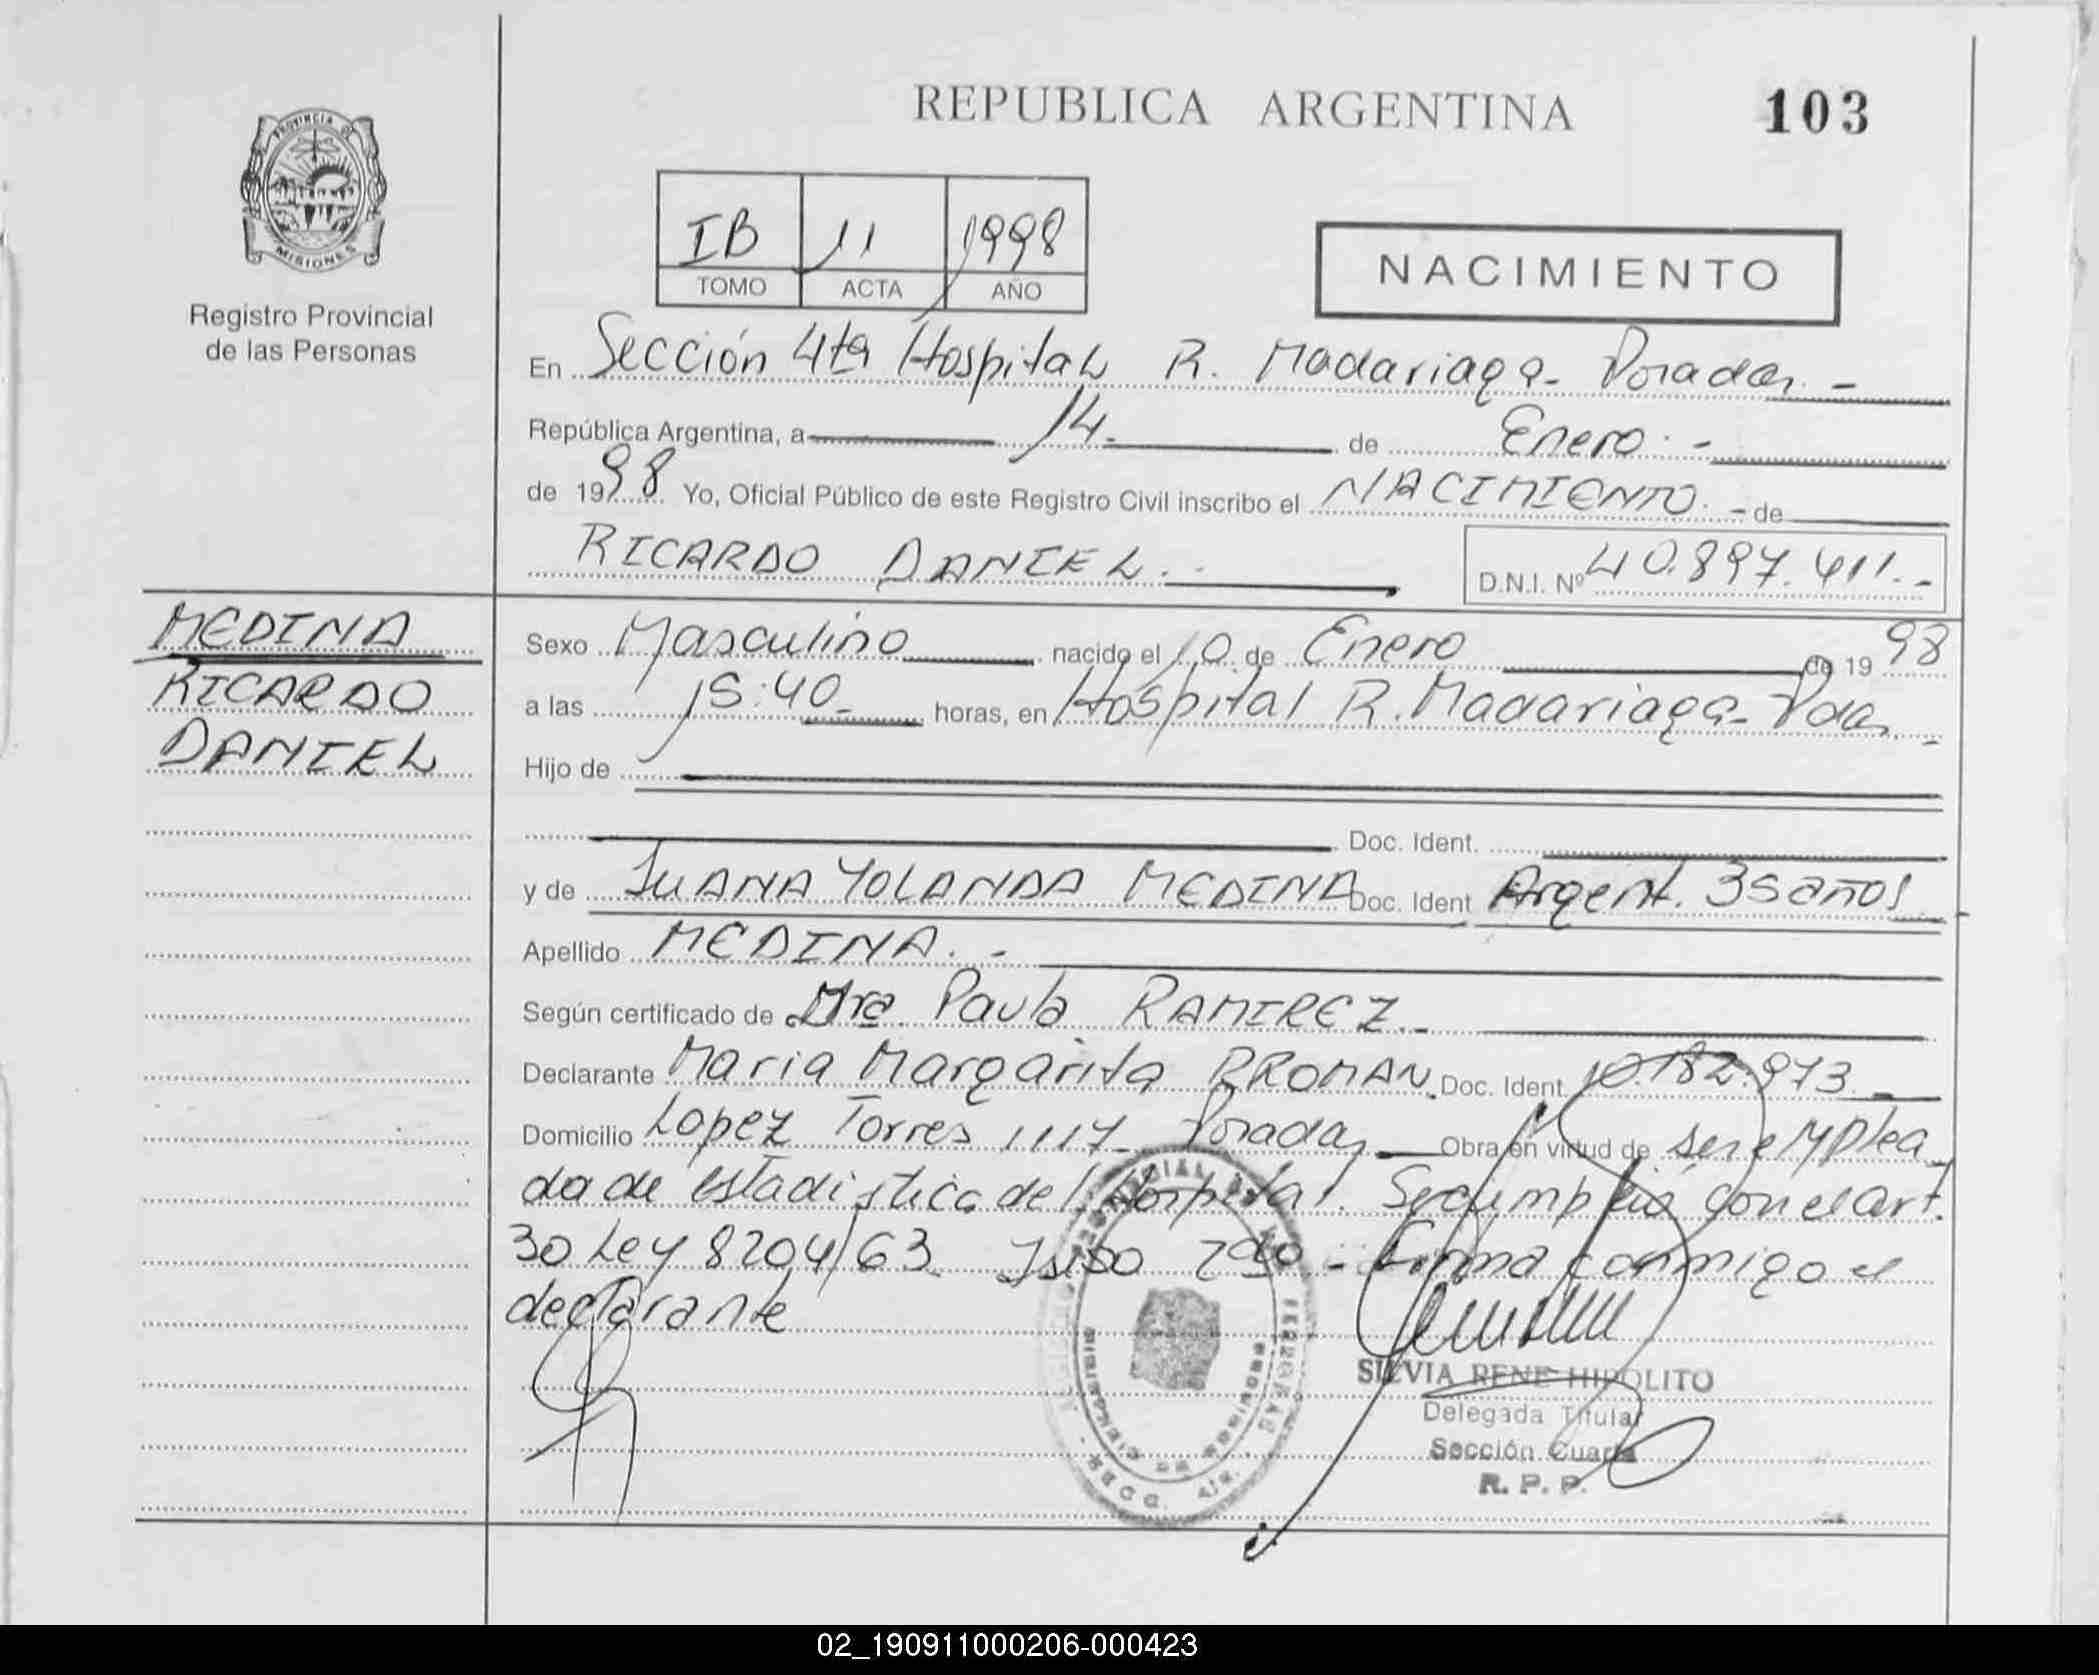 REPUBLICA ARGENTINA
103
PROVINCIA DE
MISIONES
Registro Provincial
de las Personas
IB 11 1998
TOMO ACTA AÑO
NACIMIENTO
En Sección 4ta Hospital R. Madariaga - Posadas. -
República Argentina, a 14. de Enero. -
de 1998 Yo, Oficial Público de este Registro Civil inscribo el NACIMIENTO. - de
RICARDO DANIEL. -
D.N.I. Nº 40.897.411. -
MEDINA
RICARDO
DANIEL
Sexo Masculino nacido el 10 de Enero de 19 98
a las 15:40 horas, en Hospital R. Madariaga - Pdas. -
Hijo de
Doc. Ident.
y de JUANA YOLANDA MEDINA Doc. Ident Argent. 35 años -
Apellido MEDINA. -
Según certificado de Dra. Paula RAMIREZ. -
Declarante Maria Margarita Doc. Ident. 10.182.973 -
Domicilio Lopez Torres 1117 - Posadas - Obra en virtud de ser emplea
da de estadistica del Hospital. Se cumplio con el art.
30 Ley 8204/63. - Firma conmigo el
declarante
SILVIA RENE HIPOLITO
Delegada Titular
Sección Cuarta
R. P. P.
02_190911000206-000423